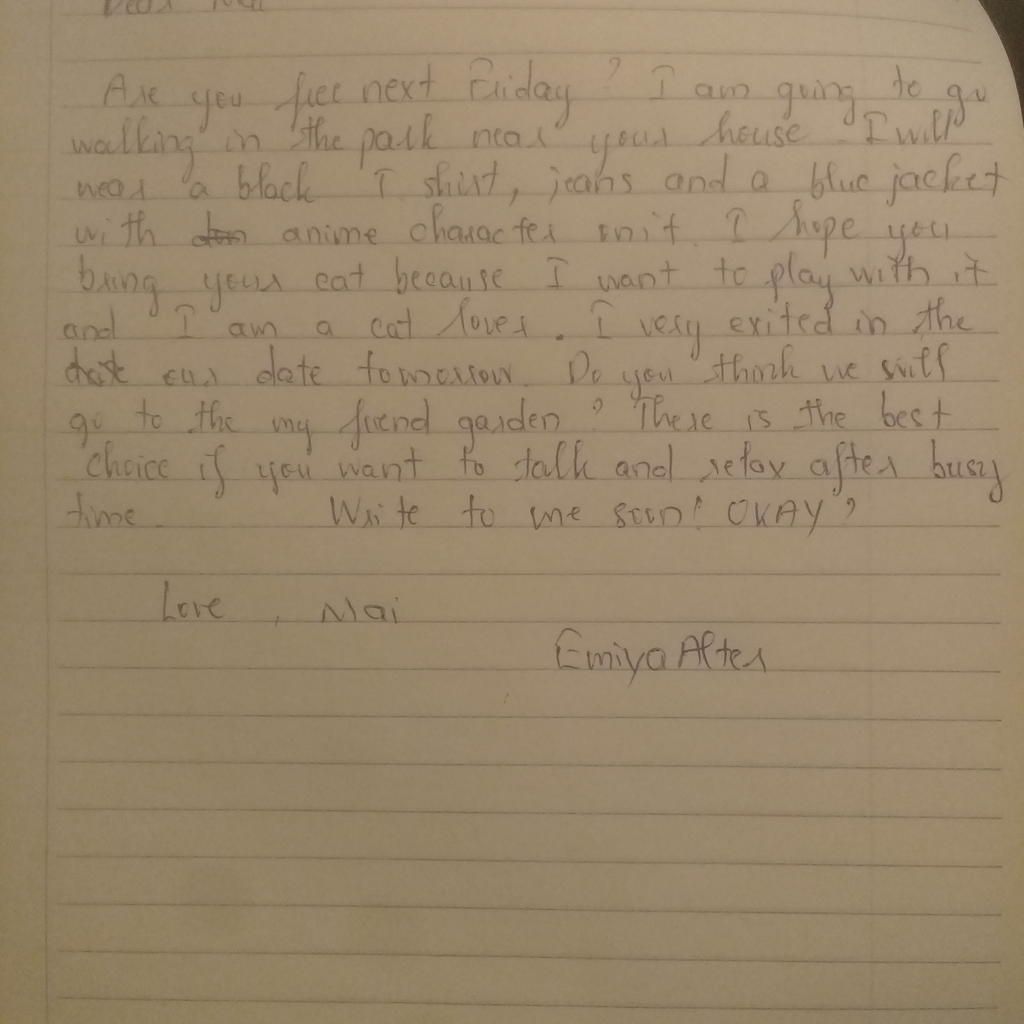 Dear
Are you free next Friday? I am going to go
walking in the park near your house. I will
wear a black T shirt, jeans and a blue jacket
with anime character init. I hope you
bring your cat because I want to play with it
and I am a cat lover. I very exited in the
our date tomorrow. Do you think we will
go to the my friend garden? There is the best
choice if you want to talk and relax after busy
time. Write to me soon! OKAY?
Love, Mai
Emiya Alter